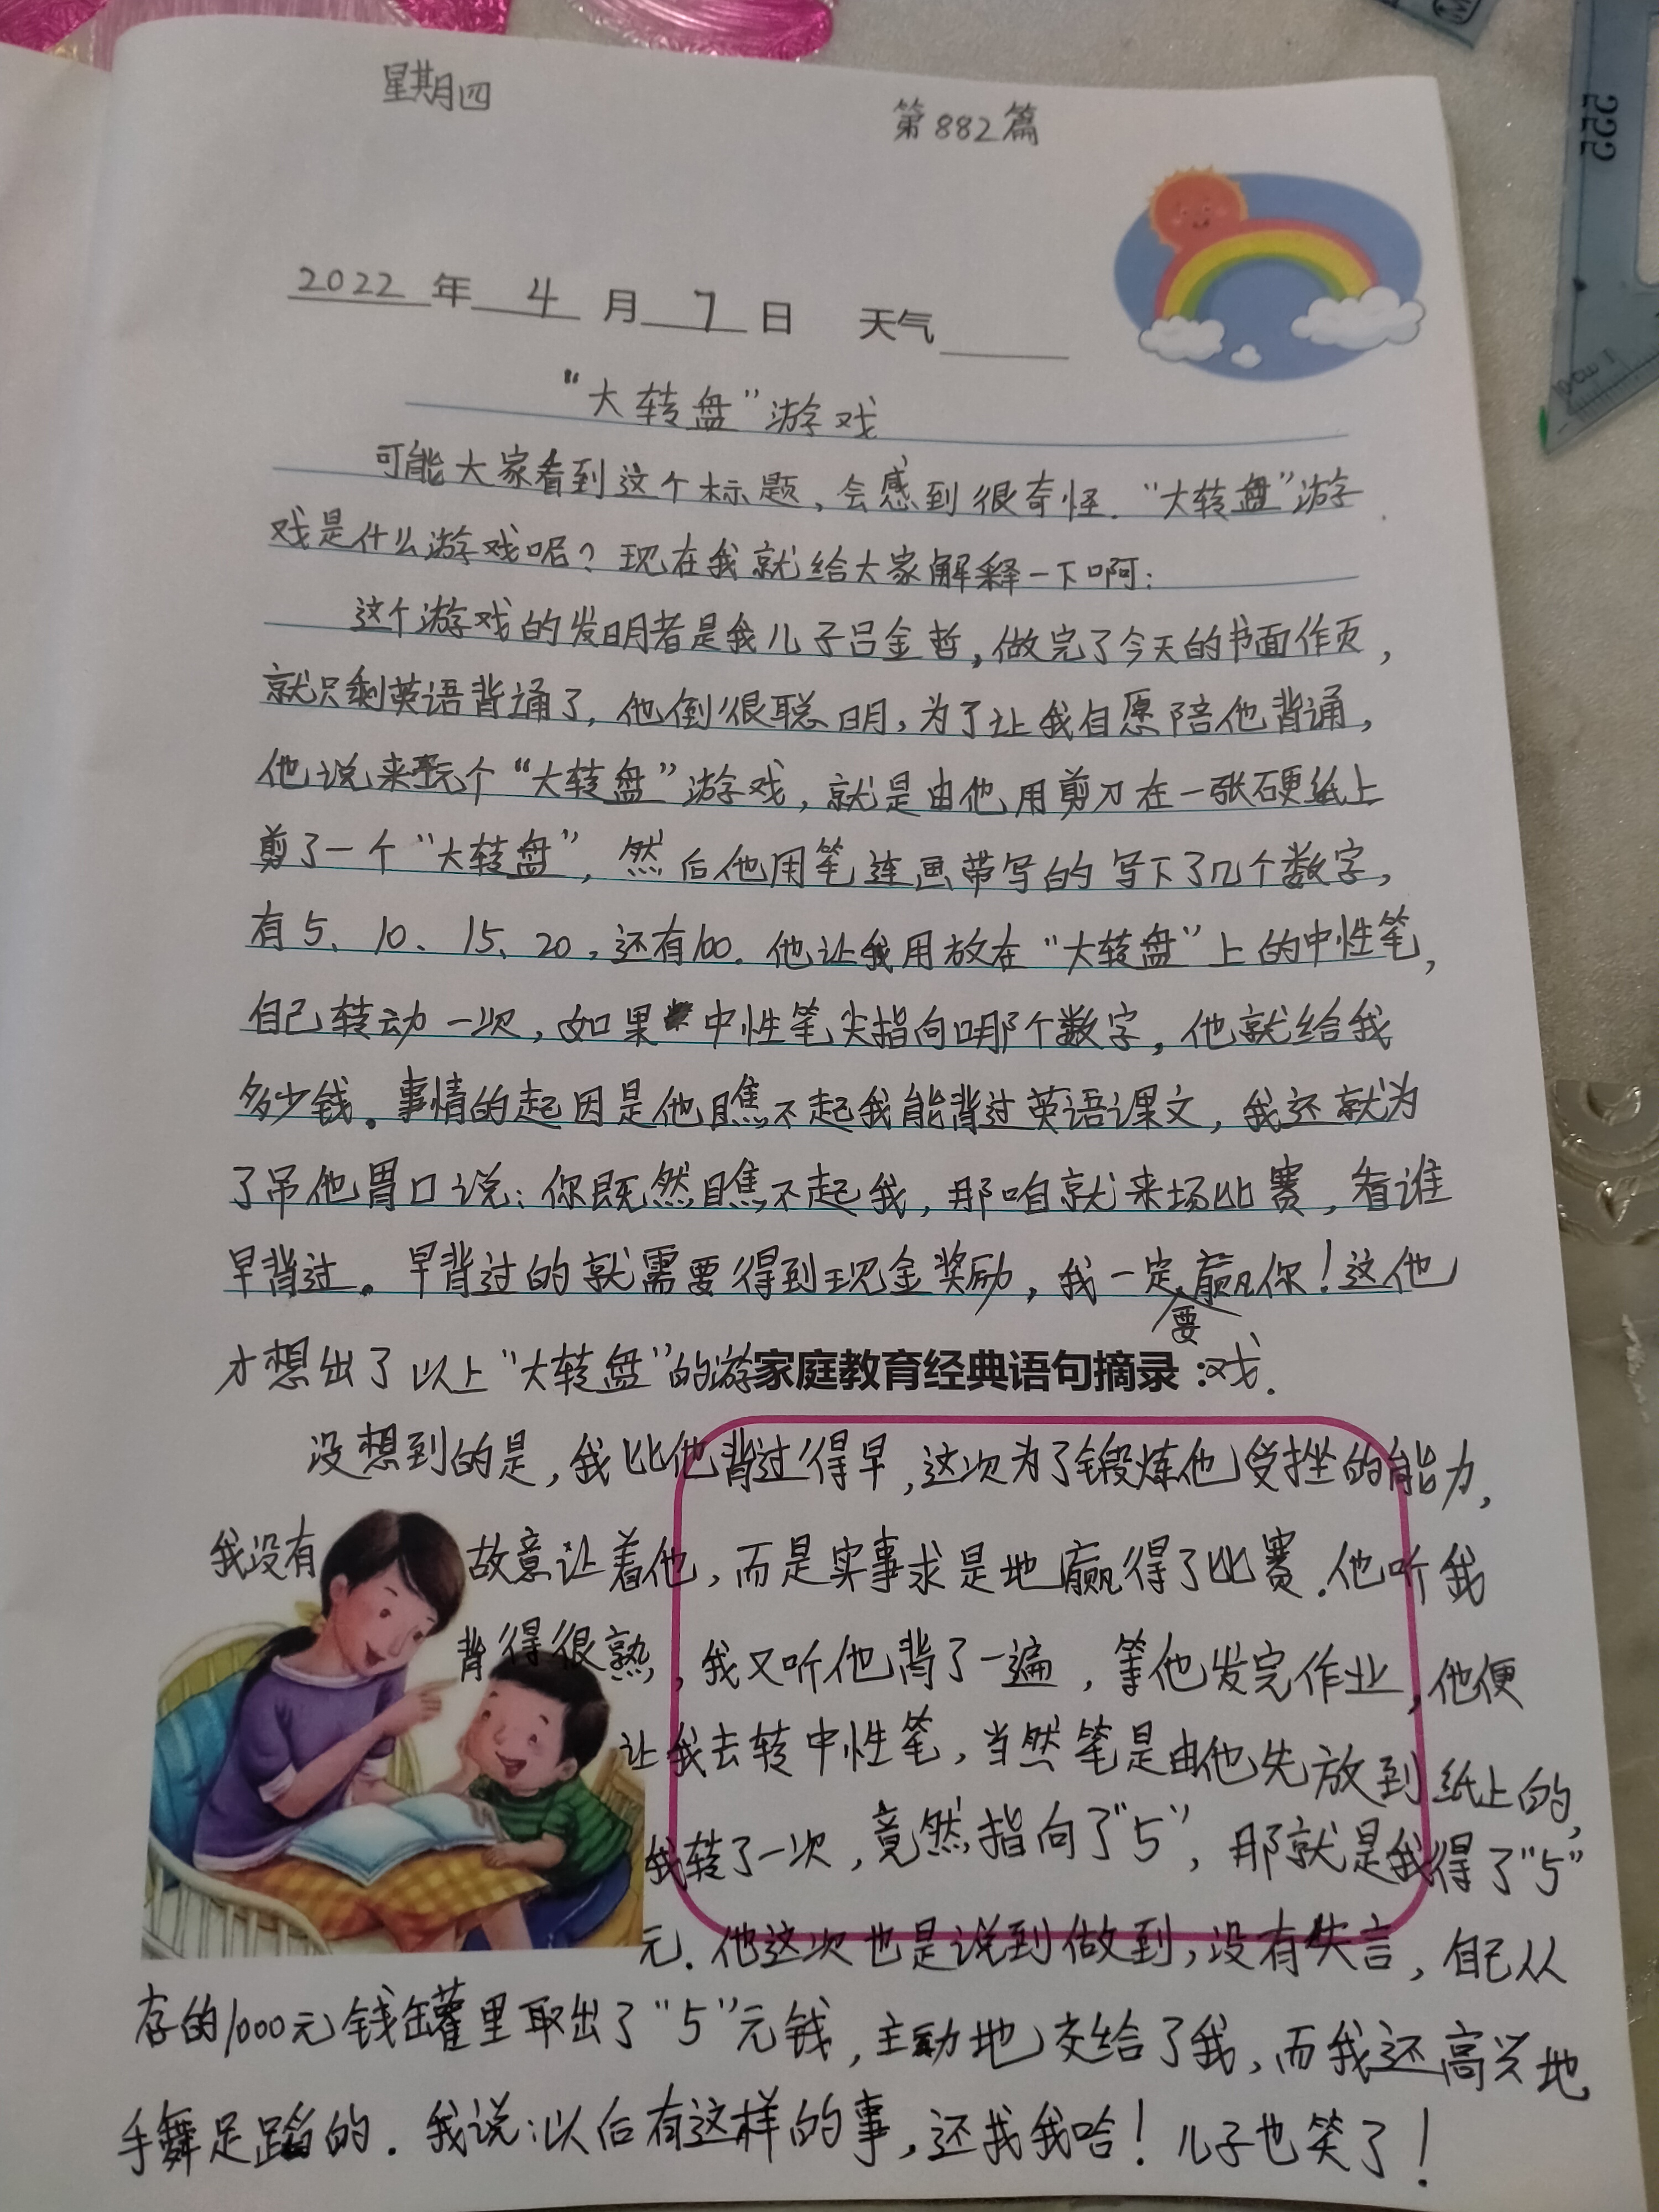 星期四
第882篇
2022年4月7日 天气
“大转盘”游戏
可能大家看到这个标题,会感到很奇怪.“大转盘”游
戏是什么游戏呢?现在我就给大家解释一下啊:
这个游戏的发明者是我儿子吕金哲,做完了今天的书面作页,
就只剩英语背诵了,他倒很聪明,为了让我自愿陪他背诵,
他说来玩个“大转盘”游戏,就是由他用剪刀在一张硬纸上
剪了一个“大转盘”,然后他用笔连画带写的写下了几个数字,
有5、10、15、20,还有100.他让我用放在“大转盘”上的中性笔,
自己转动一次,如果中性笔尖指向哪个数字,他就给我
多少钱。事情的起因是他瞧不起我能背过英语课文,我还就为
了吊他胃口说:你既然瞧不起我,那咱就来场比赛,看谁
早背过。早背过的就需要得到现金奖励,我一定要赢你!这他
才想出了以上“大转盘”的游戏.
家庭教育经典语句摘录:
没想到的是,我比他背过得早,这次为了锻炼他受挫的能力,
我没有故意让着他,而是实事求是地赢得了比赛.他听我
背得很熟,我又听他背了一遍,等他发完作业,他便
让我去转中性笔,当然笔是由他先放到纸上的,
我转了一次,竟然指向了“5”,那就是我得了“5”
元.他这次也是说到做到,没有失言,自己从
存的1000元钱罐里取出了“5”元钱,主动地交给了我,而我还高兴地
手舞足蹈的.我说:以后有这样的事,还找我哈!儿子也笑了!
222